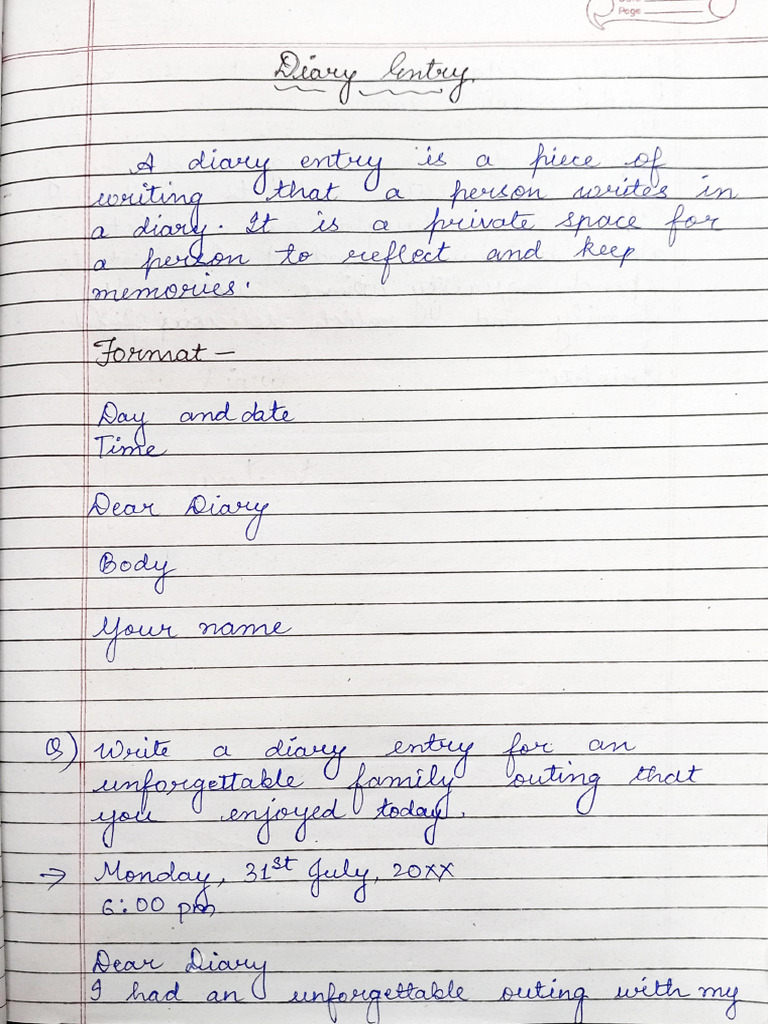 Page
Diary Entry.
A diary entry is a piece of
writing that a person writes in
a diary. It is a private space for
a person to reflect and keep
memories.
Format –
Day and date
Time
Dear Diary
Body
Your name
Q) Write a diary entry for an
unforgettable family outing that
you enjoyed today.
→ Monday, 31st July, 20XX
6:00 pm
Dear Diary
I had an unforgettable outing with my